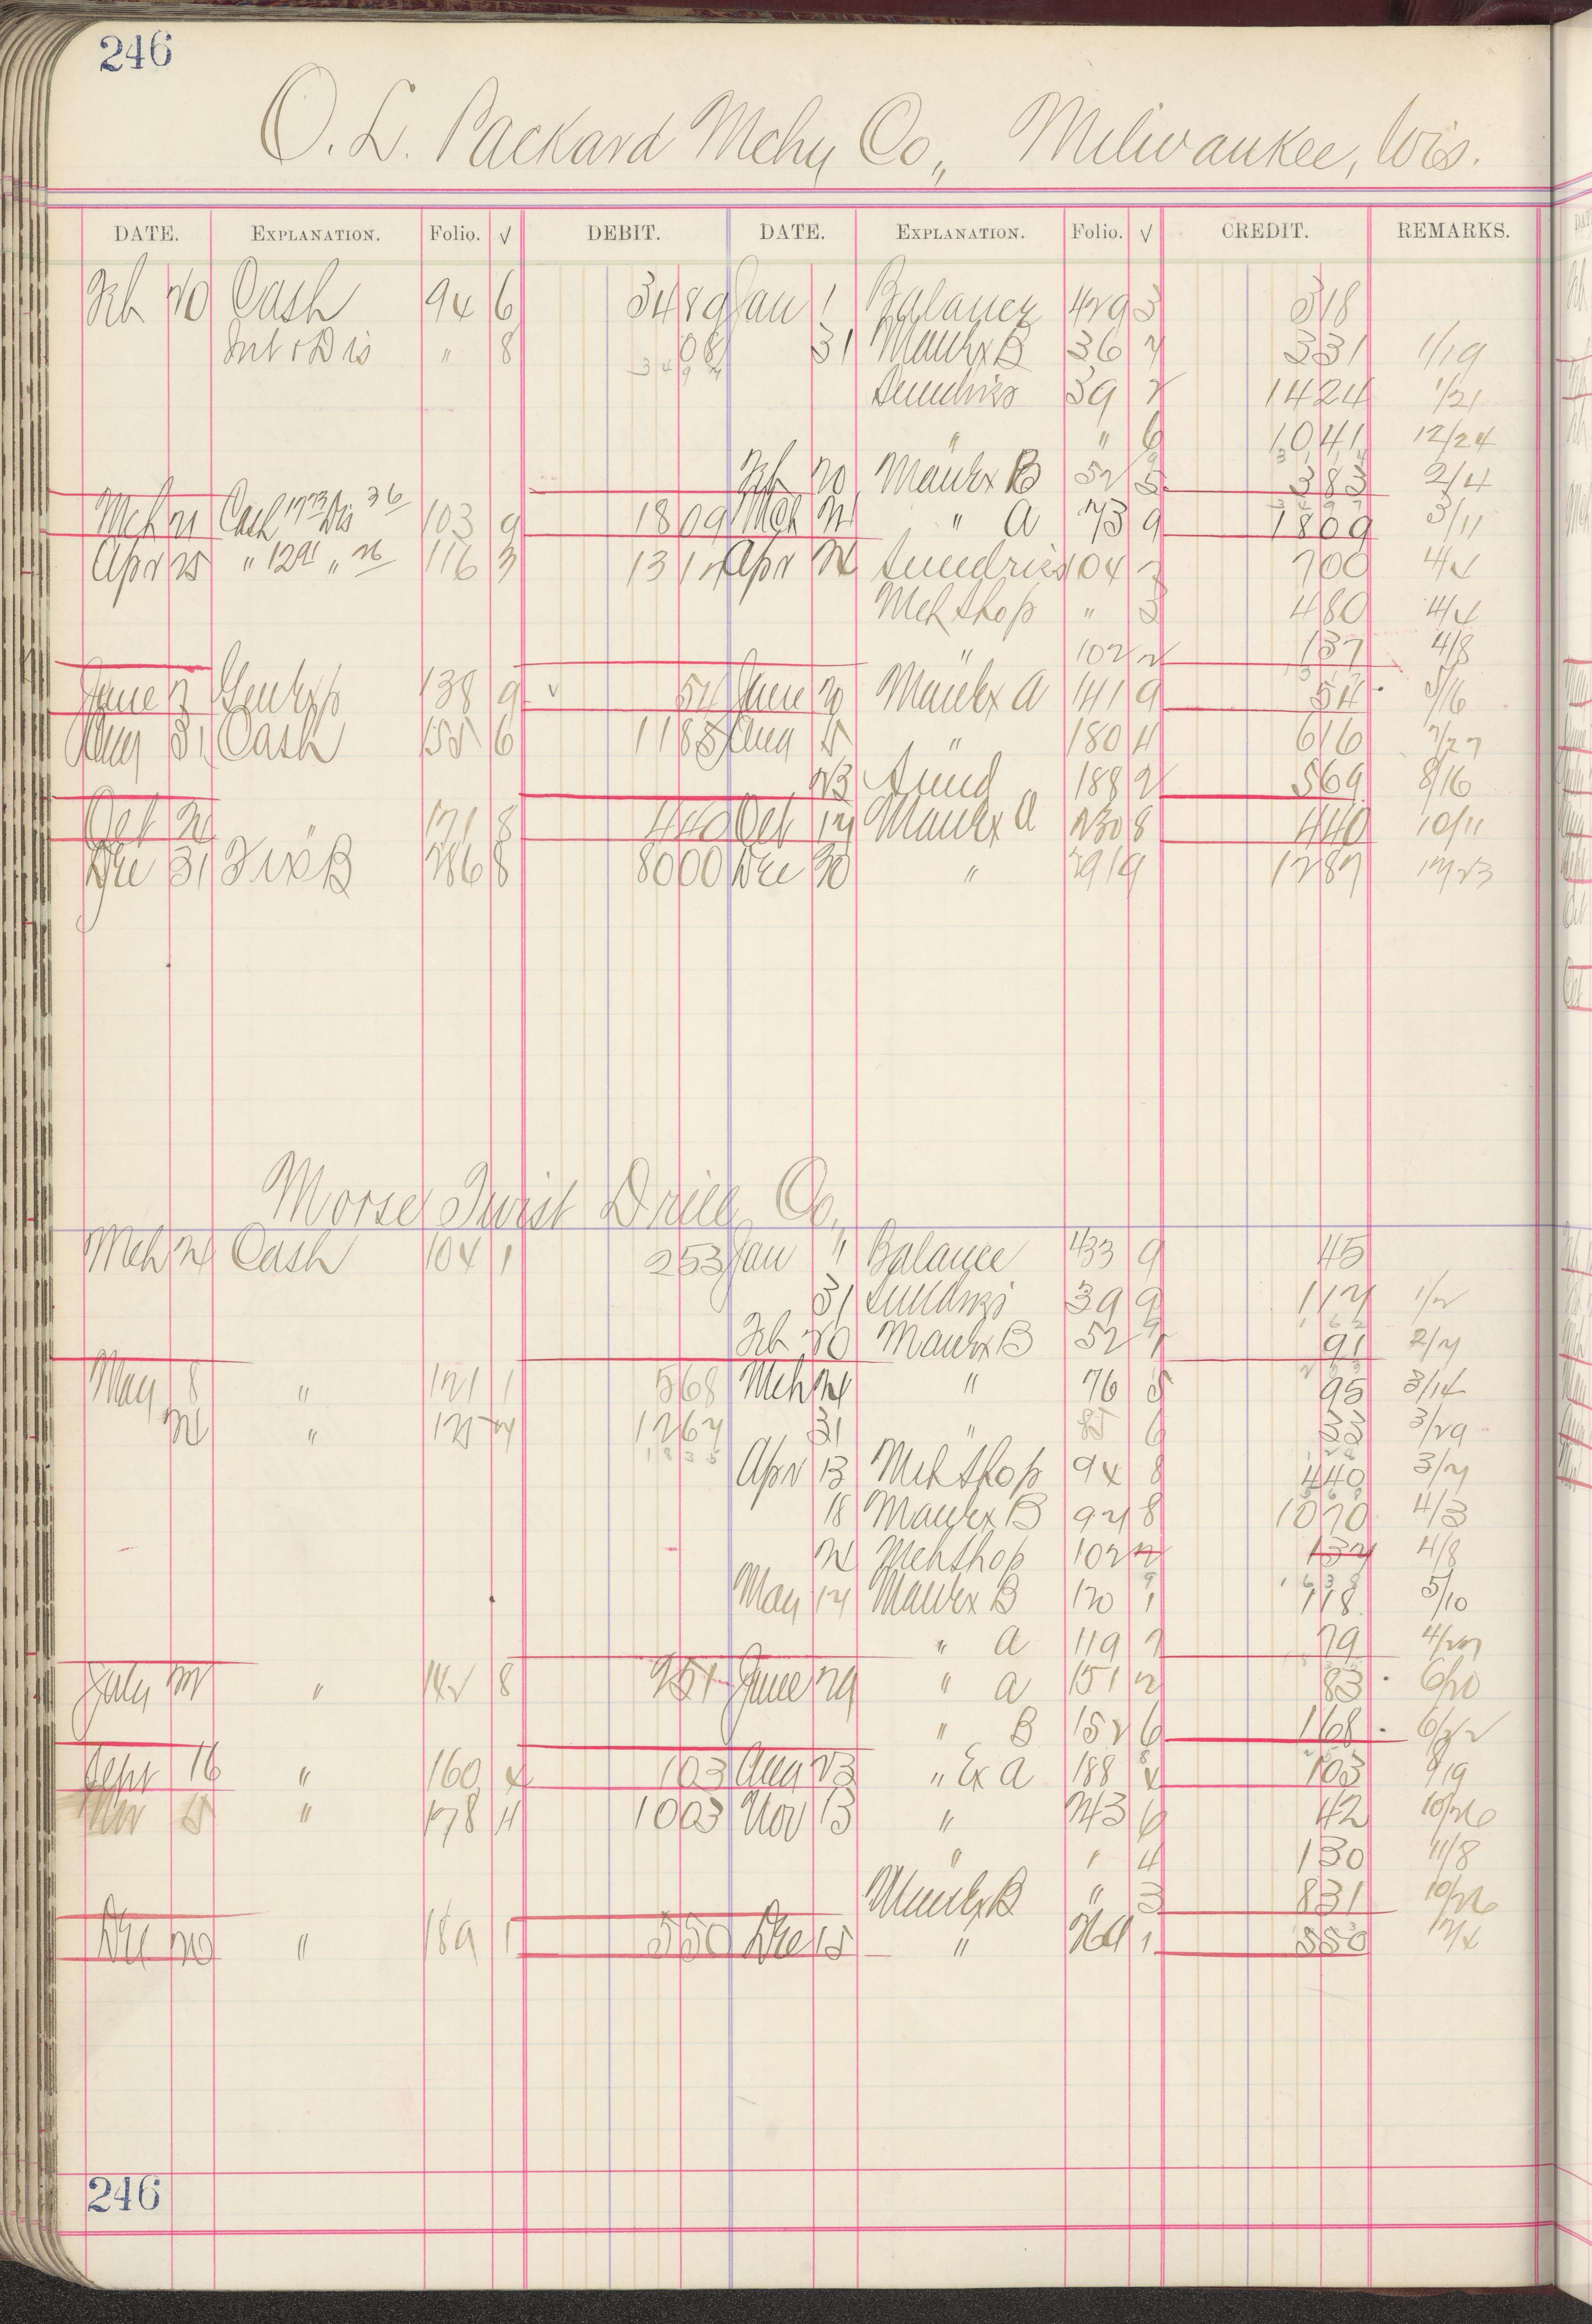 246
O. L. Packard Mchy Co., Milwaukee, Wis.
DATE. EXPLANATION. Folio. √ DEBIT. DATE. EXPLANATION. Folio. √ CREDIT. REMARKS.
Feb 20 Cash 94 6 3489 Jan 1 Balance 429 3 318
Int & Dis " 8 08 31 Manfx B 36 7 331 1/19
Sundries 39 1424 1/21
" " 6 1041 12/24
Feb 20 Manfx B 52 5 383 2/4
Mch 21 Cash 1773 Dis 36 103 9 1809 Mch " A 73 9 1809 3/11
Apr 25 " 1291 " 26 116 3 1317 Apr Sundries 104 700 4/4
Mch Shop " 3 480 4/4
" 102 2 137 4/8
June 138 9 √ 54 June 20 Manfx A 141 9 54
Aug 31 Cash 155 6 1185 Aug 5 " 180 4 616 7/27
23 Sund 188 2 569 8/16
Oct 21 " 171 8 440 Oct 17 Manfx A 230 8 440 10/11
Dec 31 286 8 8000 Dec 20 " 291 9 1287 12/23
Morse Twist Drill Co.,
Mch 21 Cash 104 1 253 Jan " Balance 433 9 45
31 Sundries 39 9 117 1/2
Feb 20 Manfx B 52 91 2/7
May 8 " 121 1 568 Mch 21 " 76 5 95 3/14
" 1267 31 " 85 6 33 3/29
1835 Apr 13 Mch Shop 94 8 440 3/21
18 Manfx B 97 8 1070 4/3
Mch Shop 102 2 137 4/8
May 14 Manfx B 120 1 118 5/10
" A 119 7 79
July " 142 8 251 June 29 " A 151 2 83 6/20
" B 152 6 168 6/22
Sept 16 " 160 4 103 Aug 23 " Ex A 188 4 103
Nov 5 " 178 4 1003 Nov 13 " 243 6 42 10/26
" " 4 130 11/8
Manfx B " 3 831 10/26
Dec 20 " 189 1 550 Dec 15 " 269 1 550 12/4
246